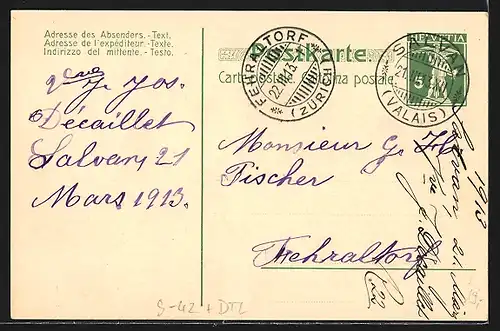 Adresse des Absenders.-Text.
Adresse de l'expéditeur.-Texte.
Indirizzo del mittente.-Testo.
Postkarte.
Carte postale
postale
HELVETIA
5
FEHRALTORF
22.III.13
(ZÜRICH)
SALVAN
21
(VALAIS)
Jos.
Décaillet
Salvan, 21
Mars 1913.
Monsieur G. Hb
Fischer
Fehraltorf
1913
Salvan, 21. Mars
S-42 + DTL